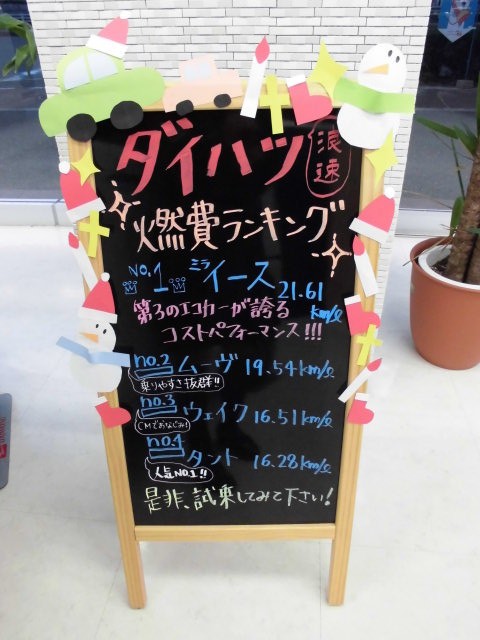 ダイハツ
浪速
燃費ランキング
NO.1 ミライース 21.61 km/ℓ
第3のエコカーが誇る
コストパフォーマンス!!!
no.2 ムーヴ 19.54km/ℓ
乗りやすさ抜群!!
no.3 ウェイク 16.51km/ℓ
CMでおなじみ!
no.4 タント 16.28km/ℓ
人気NO.1!!
是非、試乗してみて下さい!